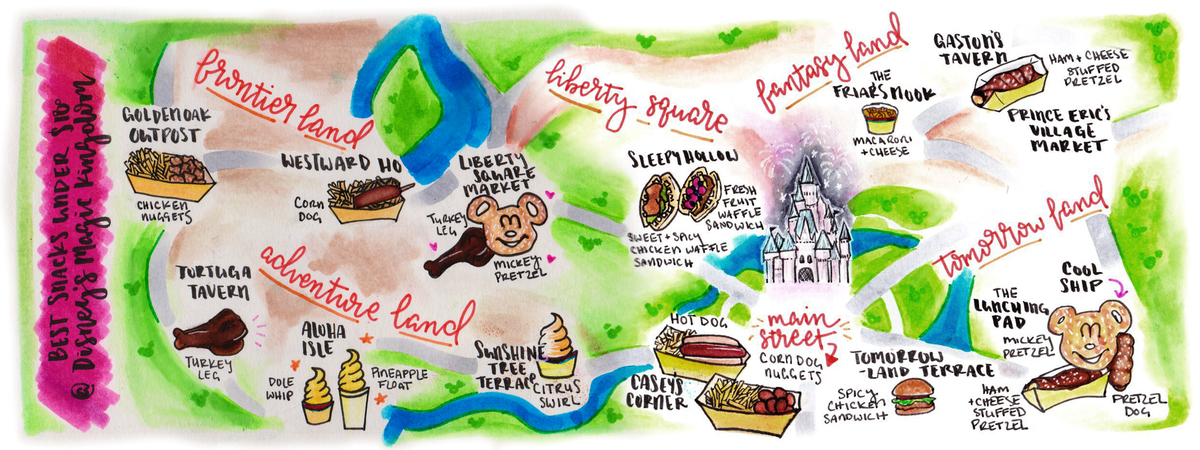 BEST SNACKS UNDER $10
@ Disney's Magic Kingdom
frontier land
GOLDEN OAK
OUTPOST
CHICKEN
NUGGETS
WESTWARD HO
CORN
DOG
LIBERTY
SQUARE
MARKET
TURKEY
LEG
MICKEY
PRETZEL
adventure land
TORTUGA
TAVERN
TURKEY
LEG
ALOHA
ISLE
DOLE
WHIP
PINEAPPLE
FLOAT
SUNSHINE
TREE
TERRACE
CITRUS
SWIRL
liberty square
SLEEPY HOLLOW
FRESH
FRUIT
WAFFLE
SANDWICH
SWEET + SPICY
CHICKEN WAFFLE
SANDWICH
fantasy land
THE
FRIARS NOOK
MACARONI
+ CHEESE
GASTON'S
TAVERN
HAM + CHEESE
STUFFED
PRETZEL
PRINCE ERIC'S
VILLAGE
MARKET
main
street
HOT DOG
CORN DOG
NUGGETS
CASEY'S
CORNER
tomorrow land
COOL
SHIP
THE
LUNCHING
PAD
MICKEY
PRETZEL
TOMORROW
-LAND TERRACE
SPICY
CHICKEN
SANDWICH
HAM
+ CHEESE
STUFFED
PRETZEL
PRETZEL
DOG